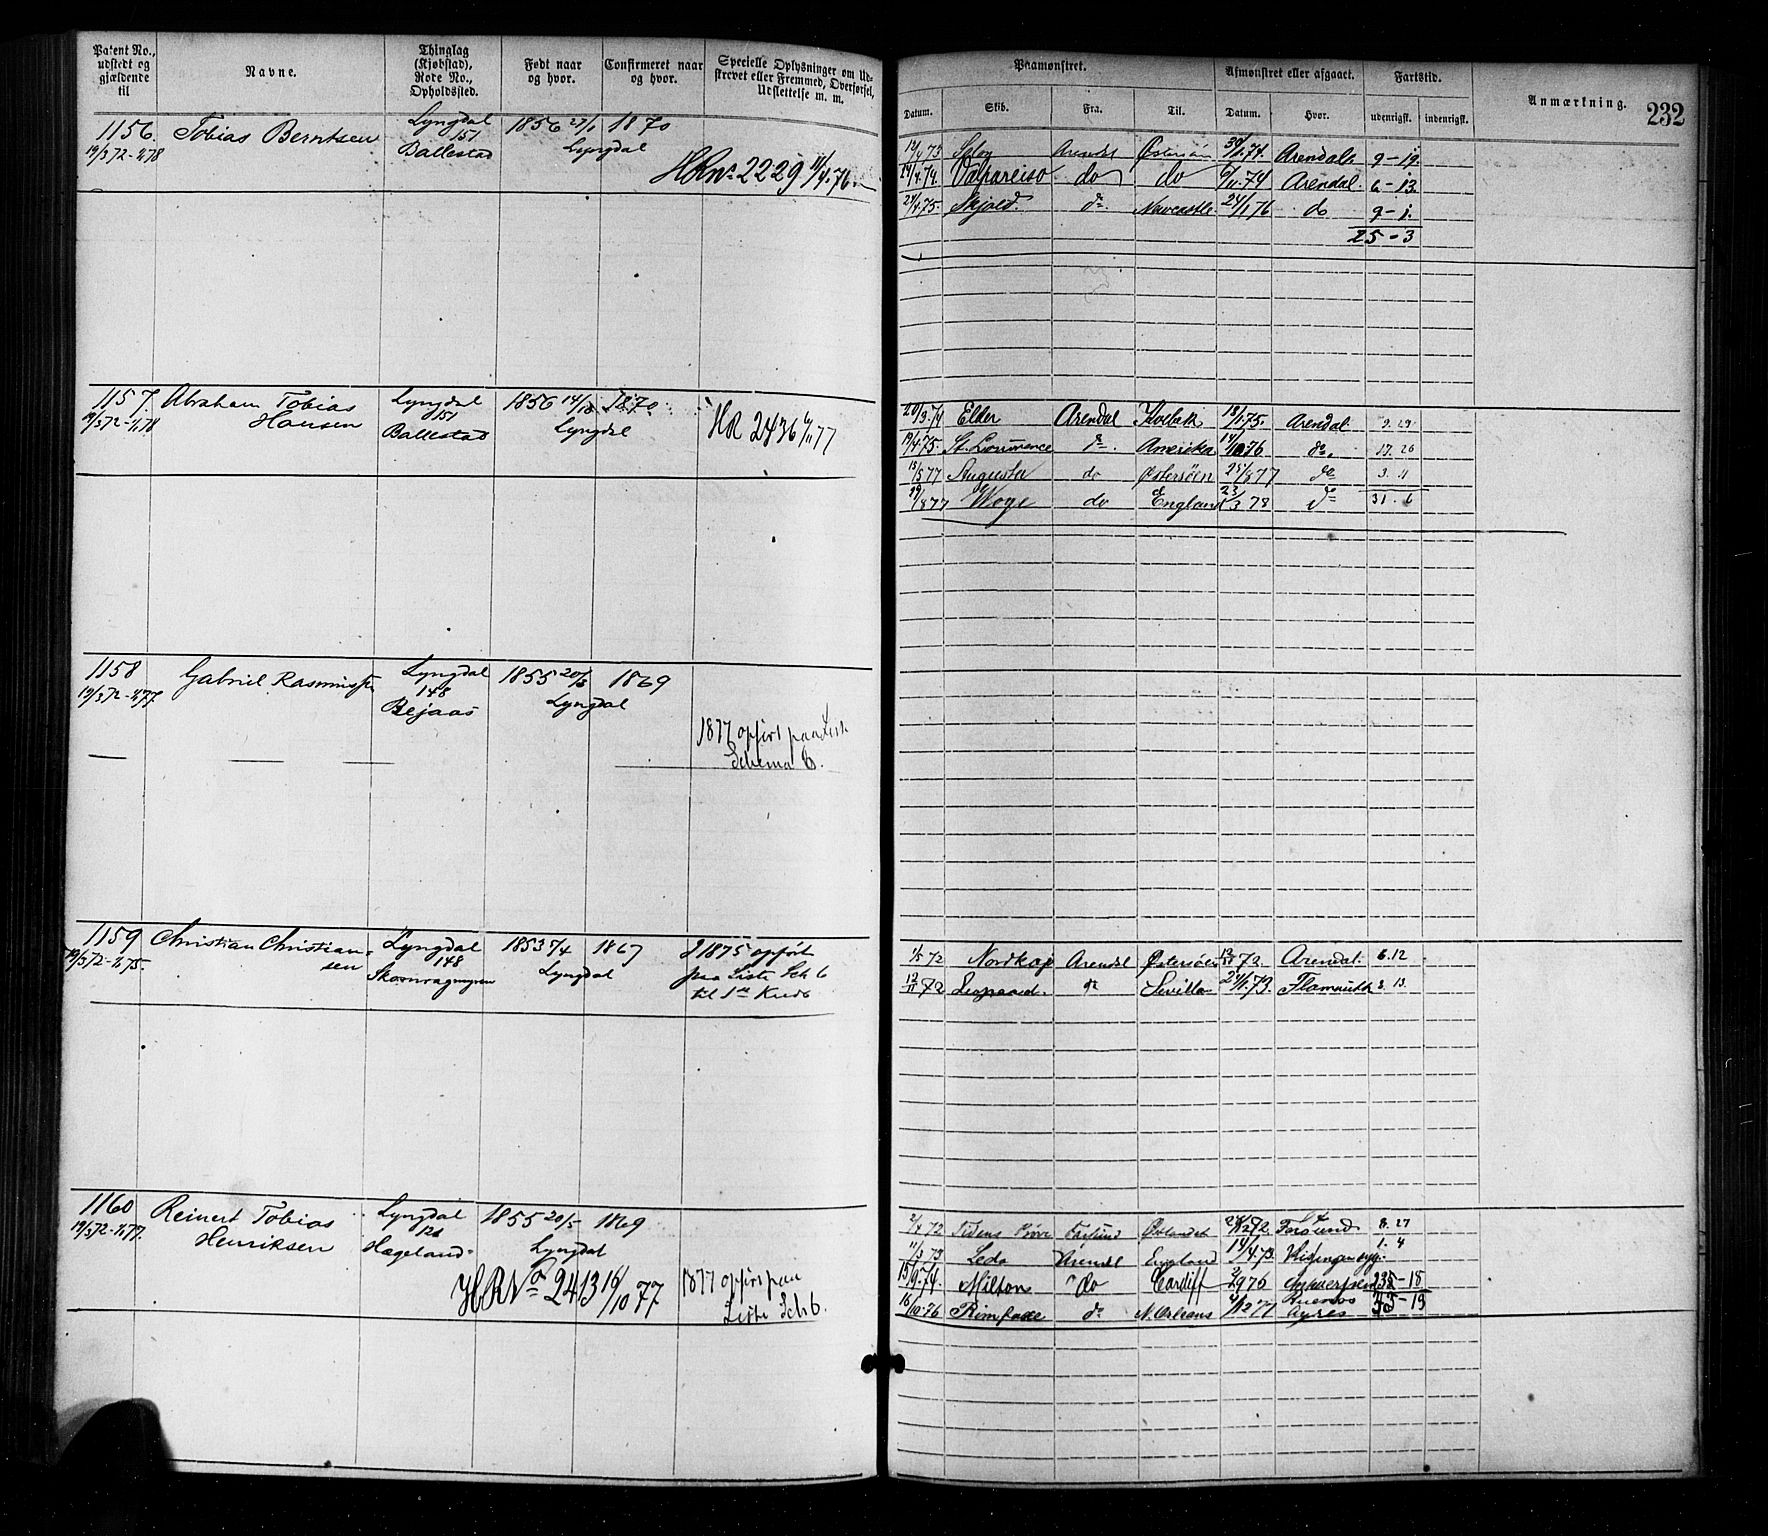 Patent No., udstedt og gjældende til
Navne.
Thinglag (Kjøbstad), Rode No., Opholdssted.
Født naar og hvor.
Confirmeret naar og hvor.
Specielle Oplysninger om Udskrevet eller Fremmed, Overførsel, Udslettelse m. m.
Paamønstret.
Afmønstret eller afgaaet.
Fartstid.
Anmærkning.
232
Datum.
Skib.
Fra.
Til.
Datum.
Hvor.
udenrigsk.
indenrigsk.
1156.
19/3 72-1/1 78
Tobias Berntsen
Lyngdal
151
Ballestad
1856 27/1 1870
Lyngdal
HR No 2229 11/4.76.
14/4 73 Arendal Arendal 9-19.
24/4.74. Valpareiso do do 6/11.74 Arendal. 6-13
24/4.75. Skjold. do Newcastle. 24/1 76 do 9-1.
25-3
1157.
19/3 72-1/1 78
Abraham Tobias
Hansen
Lyngdal
151
Ballestad
1856 14/10 1870
Lyngdal
HR 2436 6/11 77
20/3.74 Elder Arendal 18/1.75. Arendal. 9.29
19/4.75 St. Lourence do. Amerika 14/10 76 do. 17.26
13/5 77 Augusta do Østersøen 25/8 77 do 3.11
29/8 77 Woge do England 23/3 78 do 31.6
1158
19/3 72-1/1 77.
Gabriel Rasmussen
Lyngdal
148
Bejaas
1855 20/3 1869
Lyngdal
1877 opført paa Liste
Schema 6.
1159
19/3 72-1/1 75.
Christian Christian-
sen
Lyngdal
148
1853 7/4 1867
Lyngdal
1875 opført
paa Liste Sch 6
til
1/5 72 Nordkap Arendal Østersøen 72. Arendal. 6.12
12/11 72 Leopard. do Sevilla 24/1.73. 8.13
1160
19/3 72-1/1 77.
Reinert Tobias
Henriksen
Lyngdal
126
Hægeland
1855 20/5 1869
Lyngdal
HR No 2413 16/10 77
1877 opført paa
Liste Sch 6.
2/4 72 Tidens Prøve Farsund Østlandet 8.27
11/3 73 Leda Arendal England 14/4.73. 1.4
15/9.74. Milton do Cardiff 2/9 76 Antwerpen 235-18
16/10.76 Rimfaxe do N. Orleans Buenos Ayres 45-19